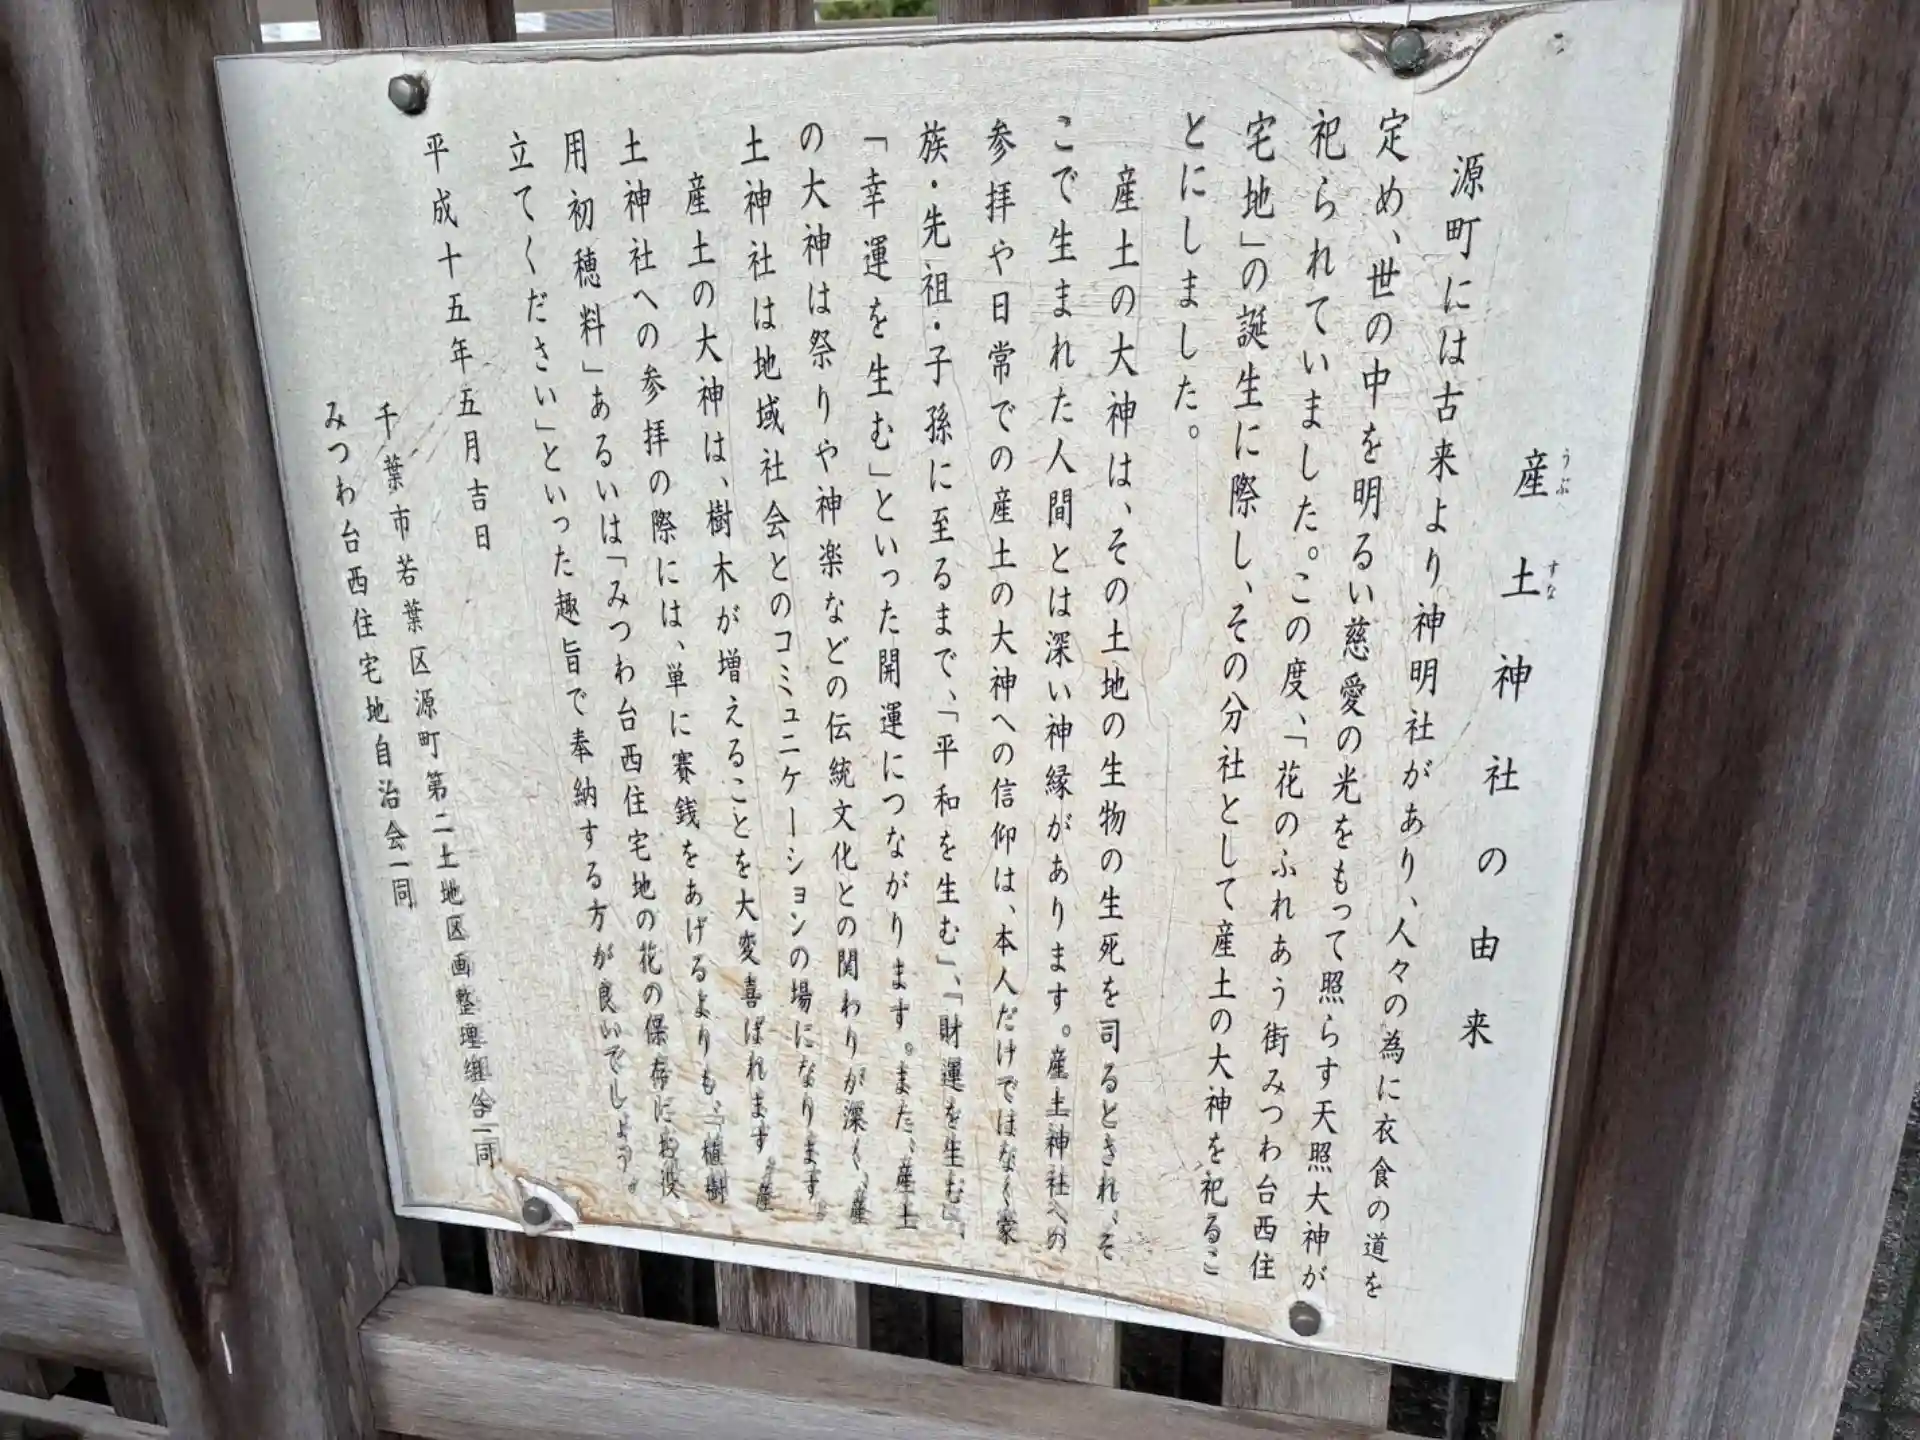 産土神社の由来
うぶすな
源町には古来より神明社があり、人々の為に衣食の道を
定め、世の中を明るい慈愛の光をもって照らす天照大神が
祀られていました。この度、「花のふれあう街みつわ台西住
宅地」の誕生に際し、その分社として産土の大神を祀るこ
とにしました。
産土の大神は、その土地の生物の生死を司るとされ、そ
こで生まれた人間とは深い神縁があります。産土神社への
参拝や日常での産土の大神への信仰は、本人だけではなく家
族・先祖・子孫に至るまで、「平和を生む」、「財運を生む」、
「幸運を生む」といった開運につながります。また、産土
の大神は祭りや神楽などの伝統文化との関わりが深く、産
土神社は地域社会とのコミュニケーションの場になります。
産土の大神は、樹木が増えることを大変喜ばれます。産
土神社への参拝の際には、単に賽銭をあげるよりも、「植樹
用初穂料」あるいは「みつわ台西住宅地の花の保存にお役
立てください」といった趣旨で奉納する方が良いでしょう。
平成十五年五月吉日
千葉市若葉区源町第二土地区画整理組合一同
みつわ台西住宅地自治会一同